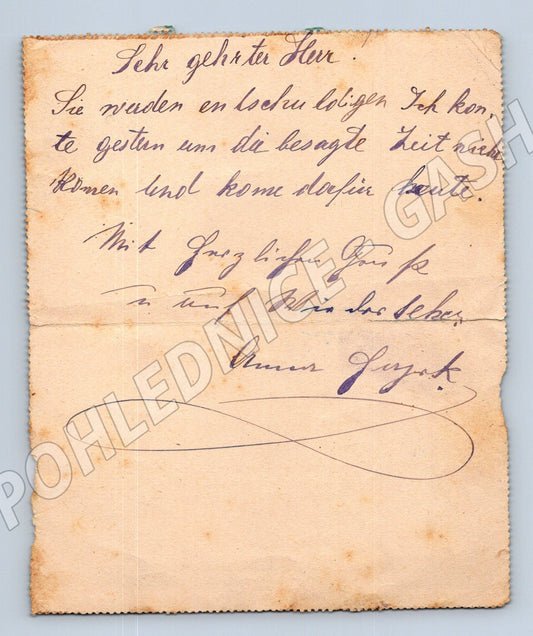 Sehr gehrter Herr.
Sie weuden entschulotigen Ich kon,
te gestern um die besagte Zeit nicht
Komen und kome dafür heute.
Mit Herzlichen Gruß
u auf Wiedersehen
Anna
POHLEDNICE - GASH